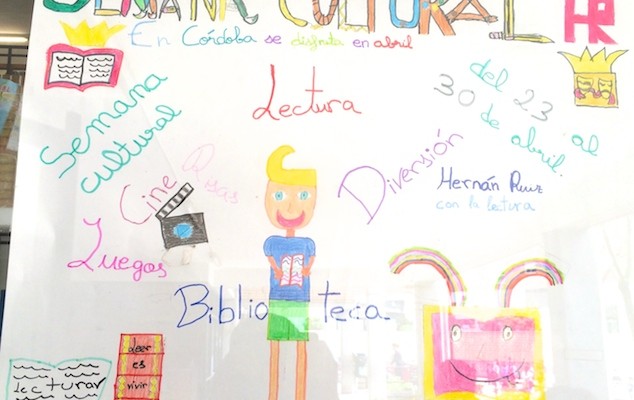 SEMANA CULTURAL
HR
En Córdoba se disfruta en abril
Lectura
del 23 al
30 de abril.
Semana
cultural
Cine
Risas
Diversión
Hernán Ruiz
con la lectura
Juegos
Biblioteca
leer
es
vivir
lecturar